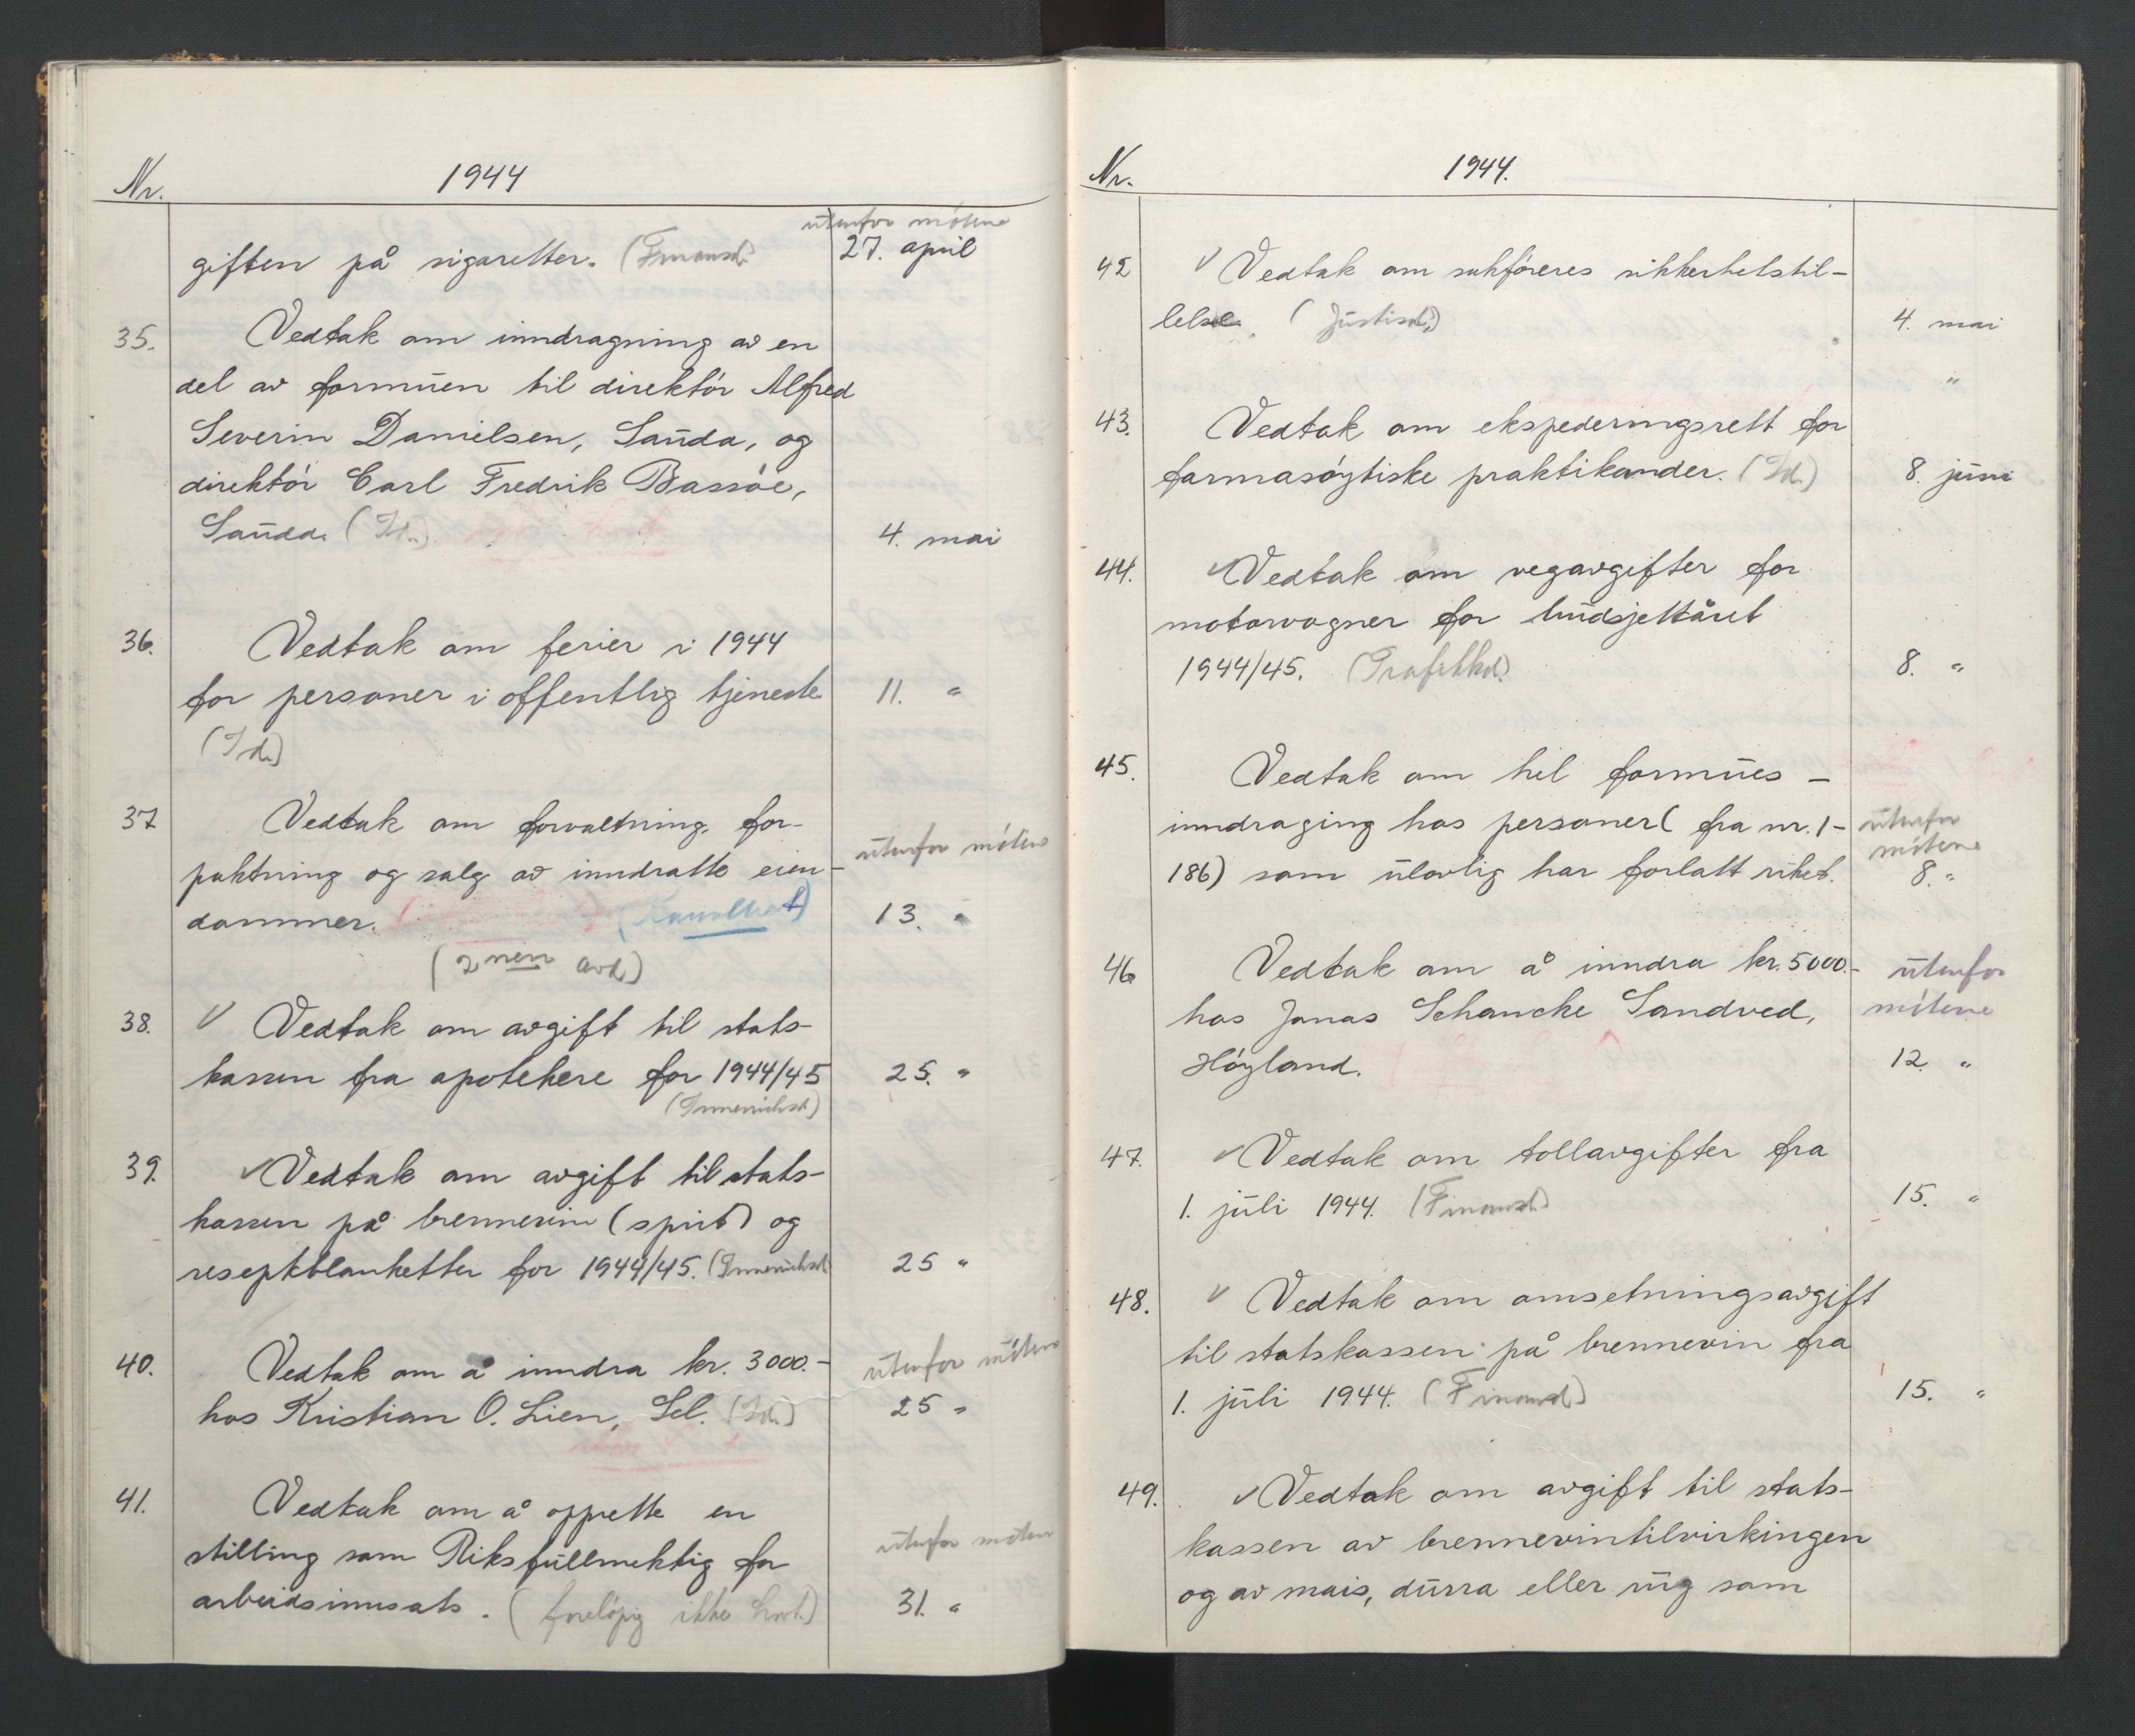 Nr.
1944
utenfor møtene
giften på sigaretter. (Finansd.
27. april
35.
Vedtak om inndragning av en
del av formuen til direktør Alfred
Severin Danielsen, Sauda, og
direktør Carl Fredrik Bassøe,
Sauda. (Id.)
4. mai
36.
Vedtak om ferier i 1944
for personer i offentlig tjeneste
11. "
(Id.)
37
Vedtak om forvaltning, for-
utenfor møtene
paktning og salg av inndratte eien-
dommer.
13. "
(2nen avd)
38.
V Vedtak om avgift til stats-
kassen fra apotekere for 1944/45
25. "
(Innenriksd)
39.
✓ Vedtak om avgift til stats-
kassen på brennevin (sprit) og
reseptblanketter for 1944/45. (Innenriksd.
25 "
40.
Vedtak om å inndra kr. 3000.-
utenfor møtene
hos Kristian O. Lien, Sel. (Id.)
25 "
41.
Vedtak om å opprette en
stilling som Riksfullmektig for
utenfor møtene
arbeidsinnsats. (foreløpig ikke
31. "
Nr.
1944.
42
V Vedtak om sakføreres sikkerhetstil-
lelse. (Justisd.)
4. mai
"
43.
Vedtak om ekspederingsrett for
farmasøytiske praktikander. (Id.)
8. juni
44.
✓ Vedtak om vegavgifter for
motorvogner for budsjettåret
1944/45. (Trafikkd.)
8. "
45.
Vedtak om hel formues-
inndraging hos personer (fra nr. 1-
utenfor
møtene
186) som ulovlig har forlatt riket.
8. "
46
Vedtak om å inndra kr. 5000.-
utenfor
hos Jonas Schancke Sandved,
møtene
Høyland.
12. "
47.
✓ Vedtak om tollavgifter fra
1. juli 1944. (Finansd)
15. "
48.
V Vedtak om omsetningsavgift
til statskassen på brennevin fra
1. juli 1944. (Finansd)
15. "
49.
✓ Vedtak om avgift til stats-
kassen av brennevintilvirkingen
og av mais, durra eller rug som